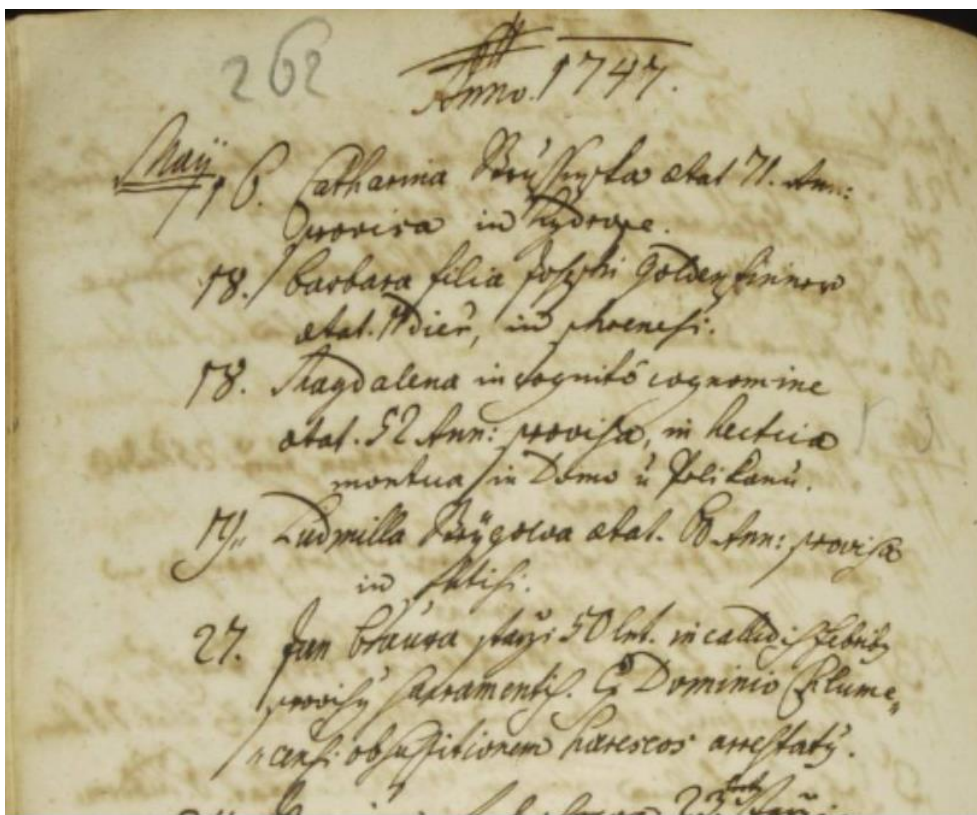 262
Anno. 1747.
Maÿ 16. Catharina ætat 71. Ann:
provisa in hydrope.
18. Barbara filia Josephi
ætat. dieru, in phrenesi.
18. Magdalena incognito cognomine
ætat. 52 Ann: provisa, in hectica
mortua in Domo u Pelikanu.
19. Ludmilla ætat. Ann: provisa
in phtisi.
27. Jan starÿ 50 let. in calidis febrib9
provisq sacramentis. Ex Dominio Chlume„
„censi ob suspitionem hæreseos arrestatq.